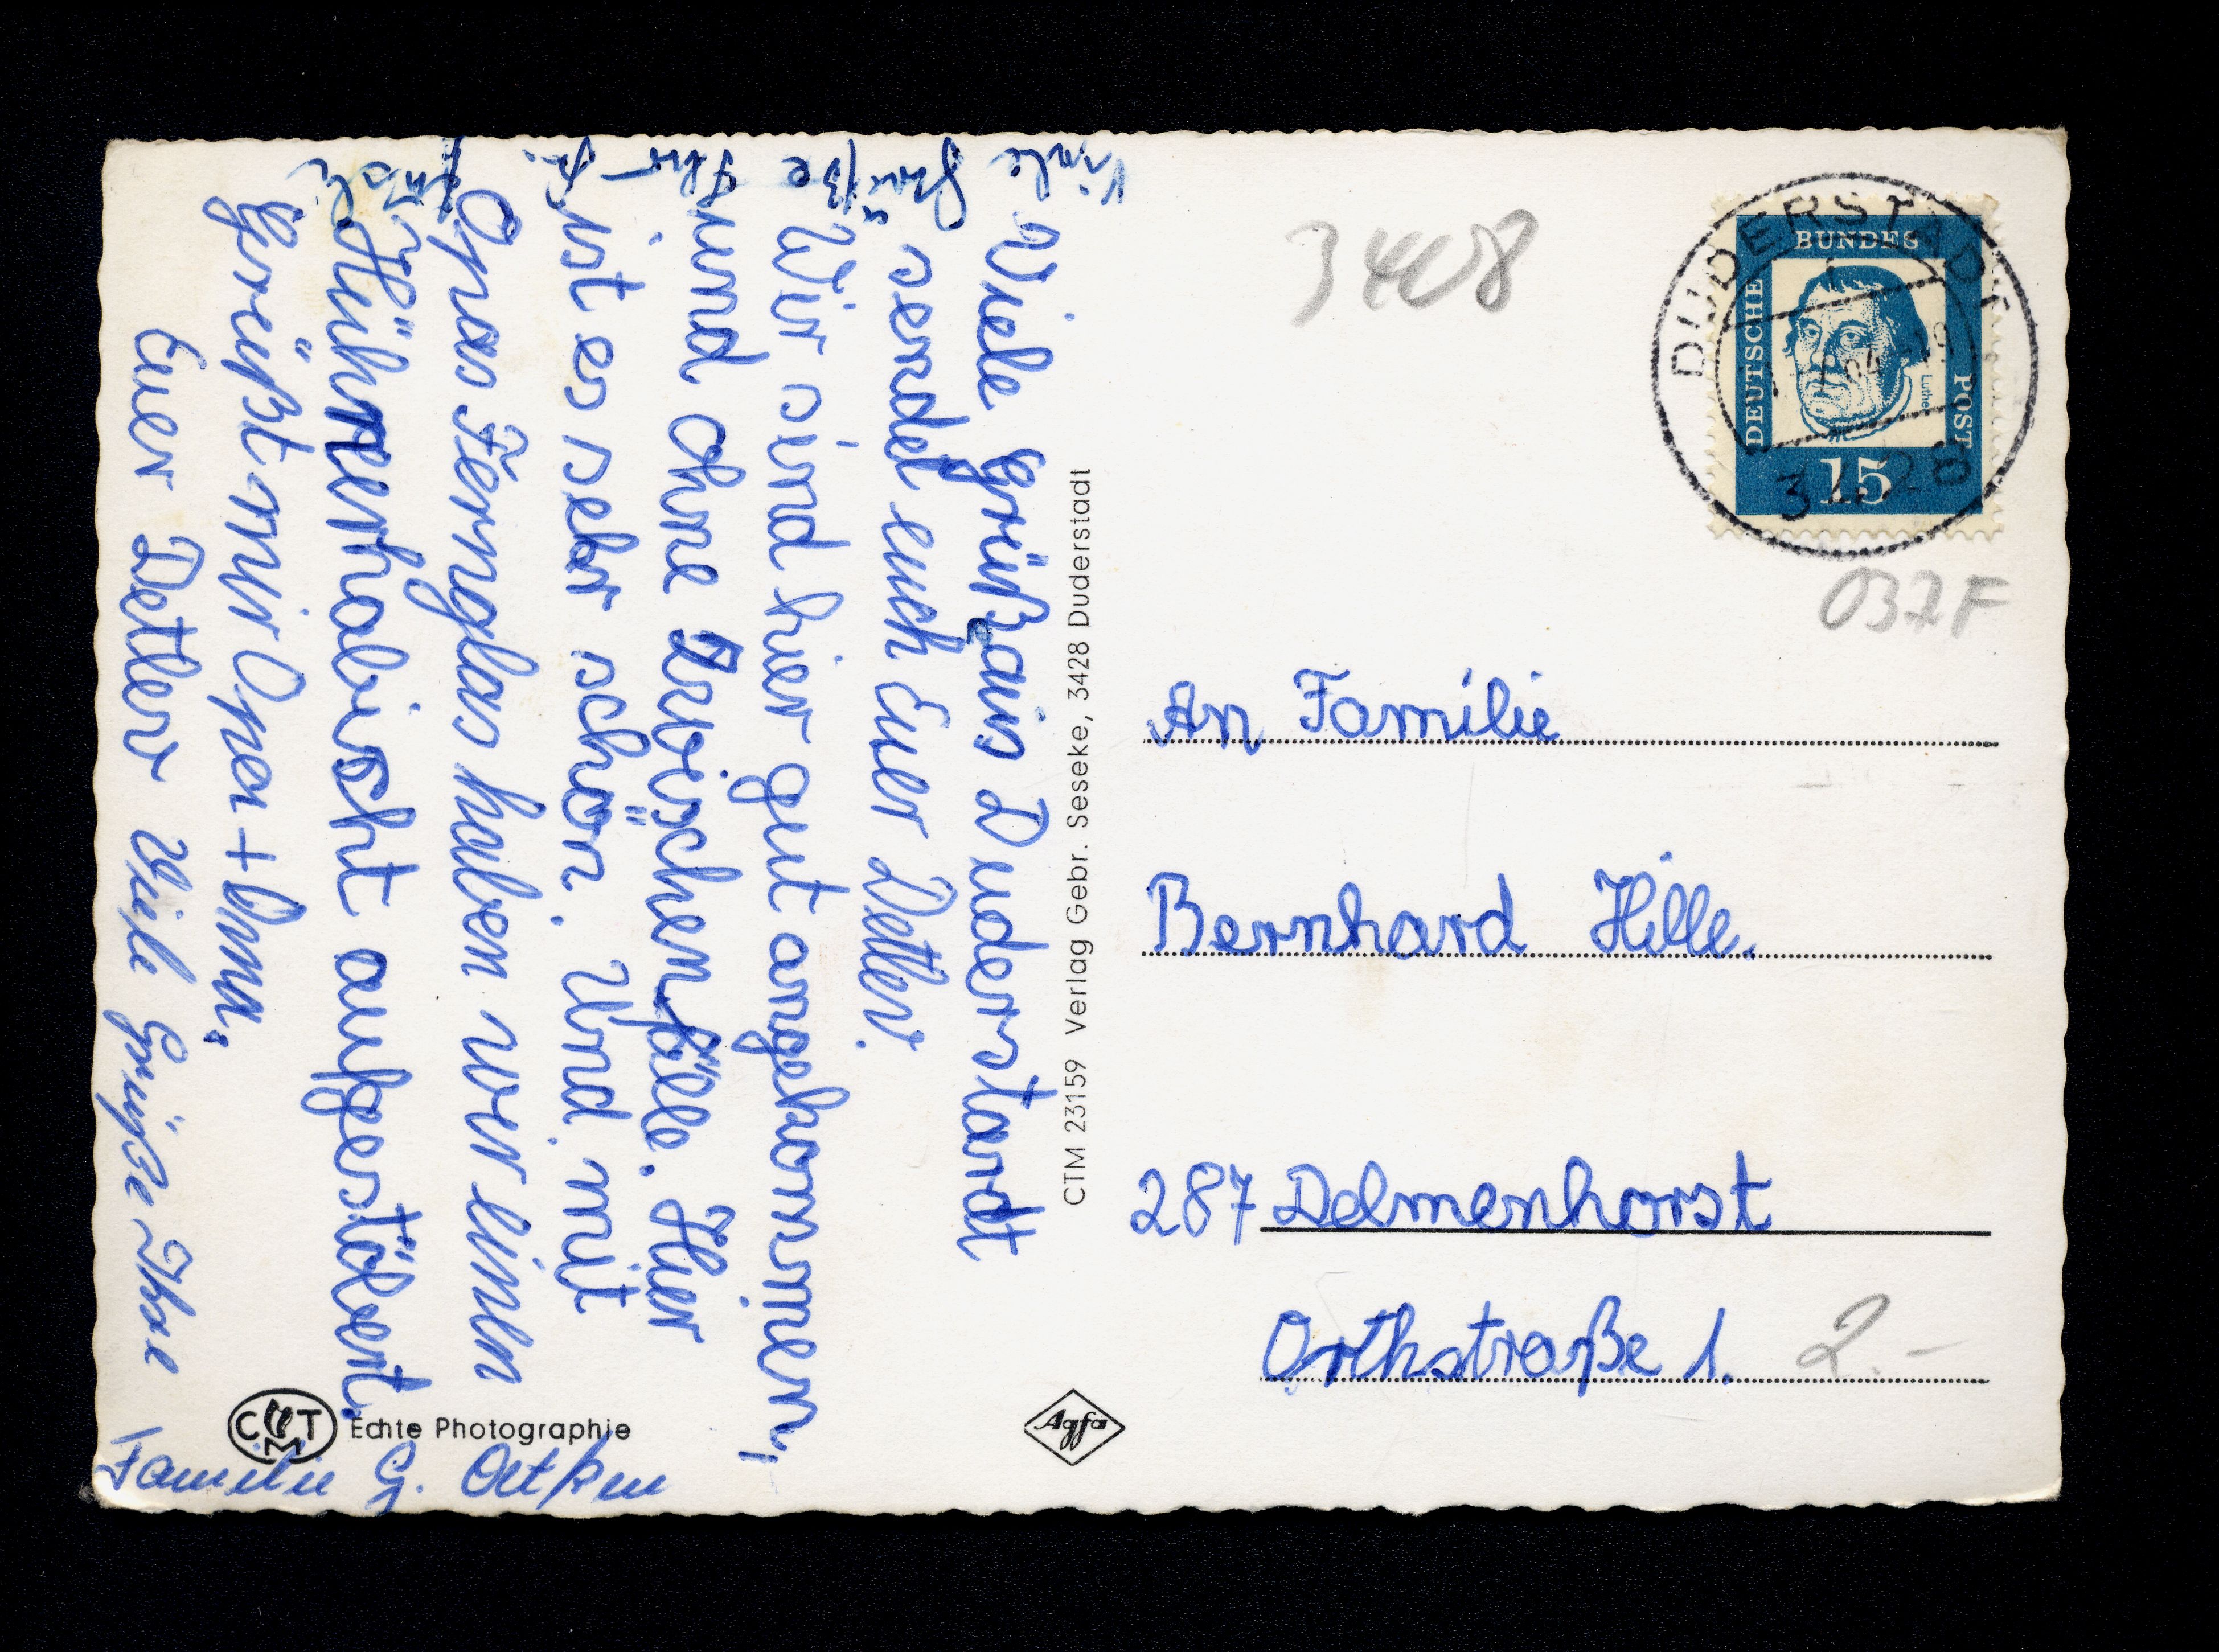 Viele grüße aus Duderstardt
sendet euch Euer Detlev.
Wir sind hier gut angekommen,
und ohne Zwischenfälle. Hier
ist es sehr schön. Und mit
Opas Fernglas haben wir einen
Hühnerhabischt aufgestöbert.
Grüßt mir Opa + Oma.
Euer Detlev Viele Grüße Ihre
Familie G. Oetken
Viele Grüße Ihr
CTM 23159 Verlag Gebr. Seseke, 3428 Duderstadt
CTM Echte Photographie
Agfa
3408
DUDERSTADT
3428
DEUTSCHE BUNDES POST
Luther
15
032F
An Familie
Bernhard Hille.
287 Delmenhorst
Orthstraße 1.
2.-